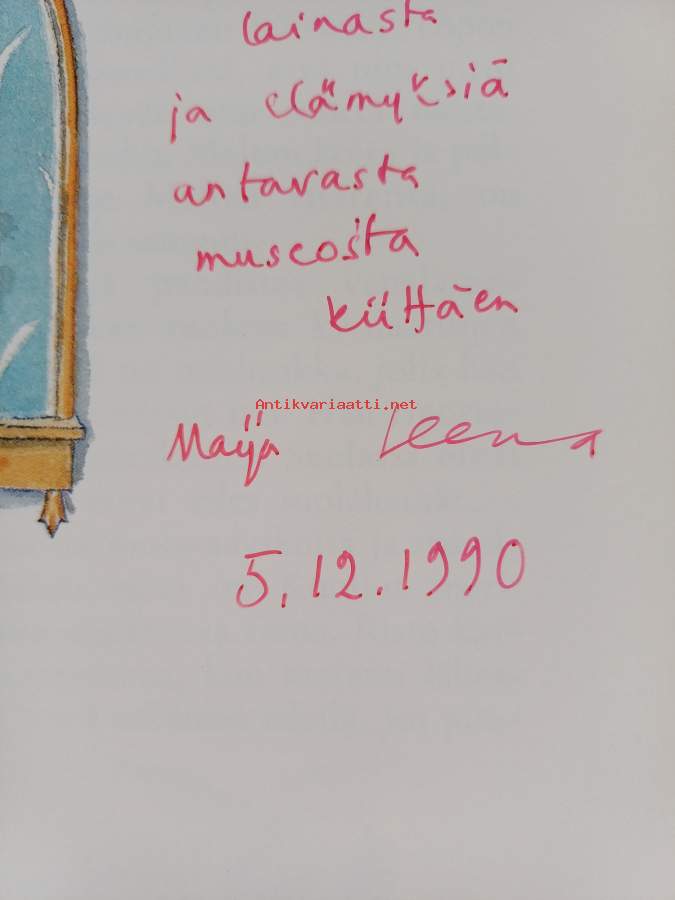 lainasta
ja elämyksiä
antavasta
museosta
kiittäen
Antikvariaatti.net
Maija Leena
5.12.1990